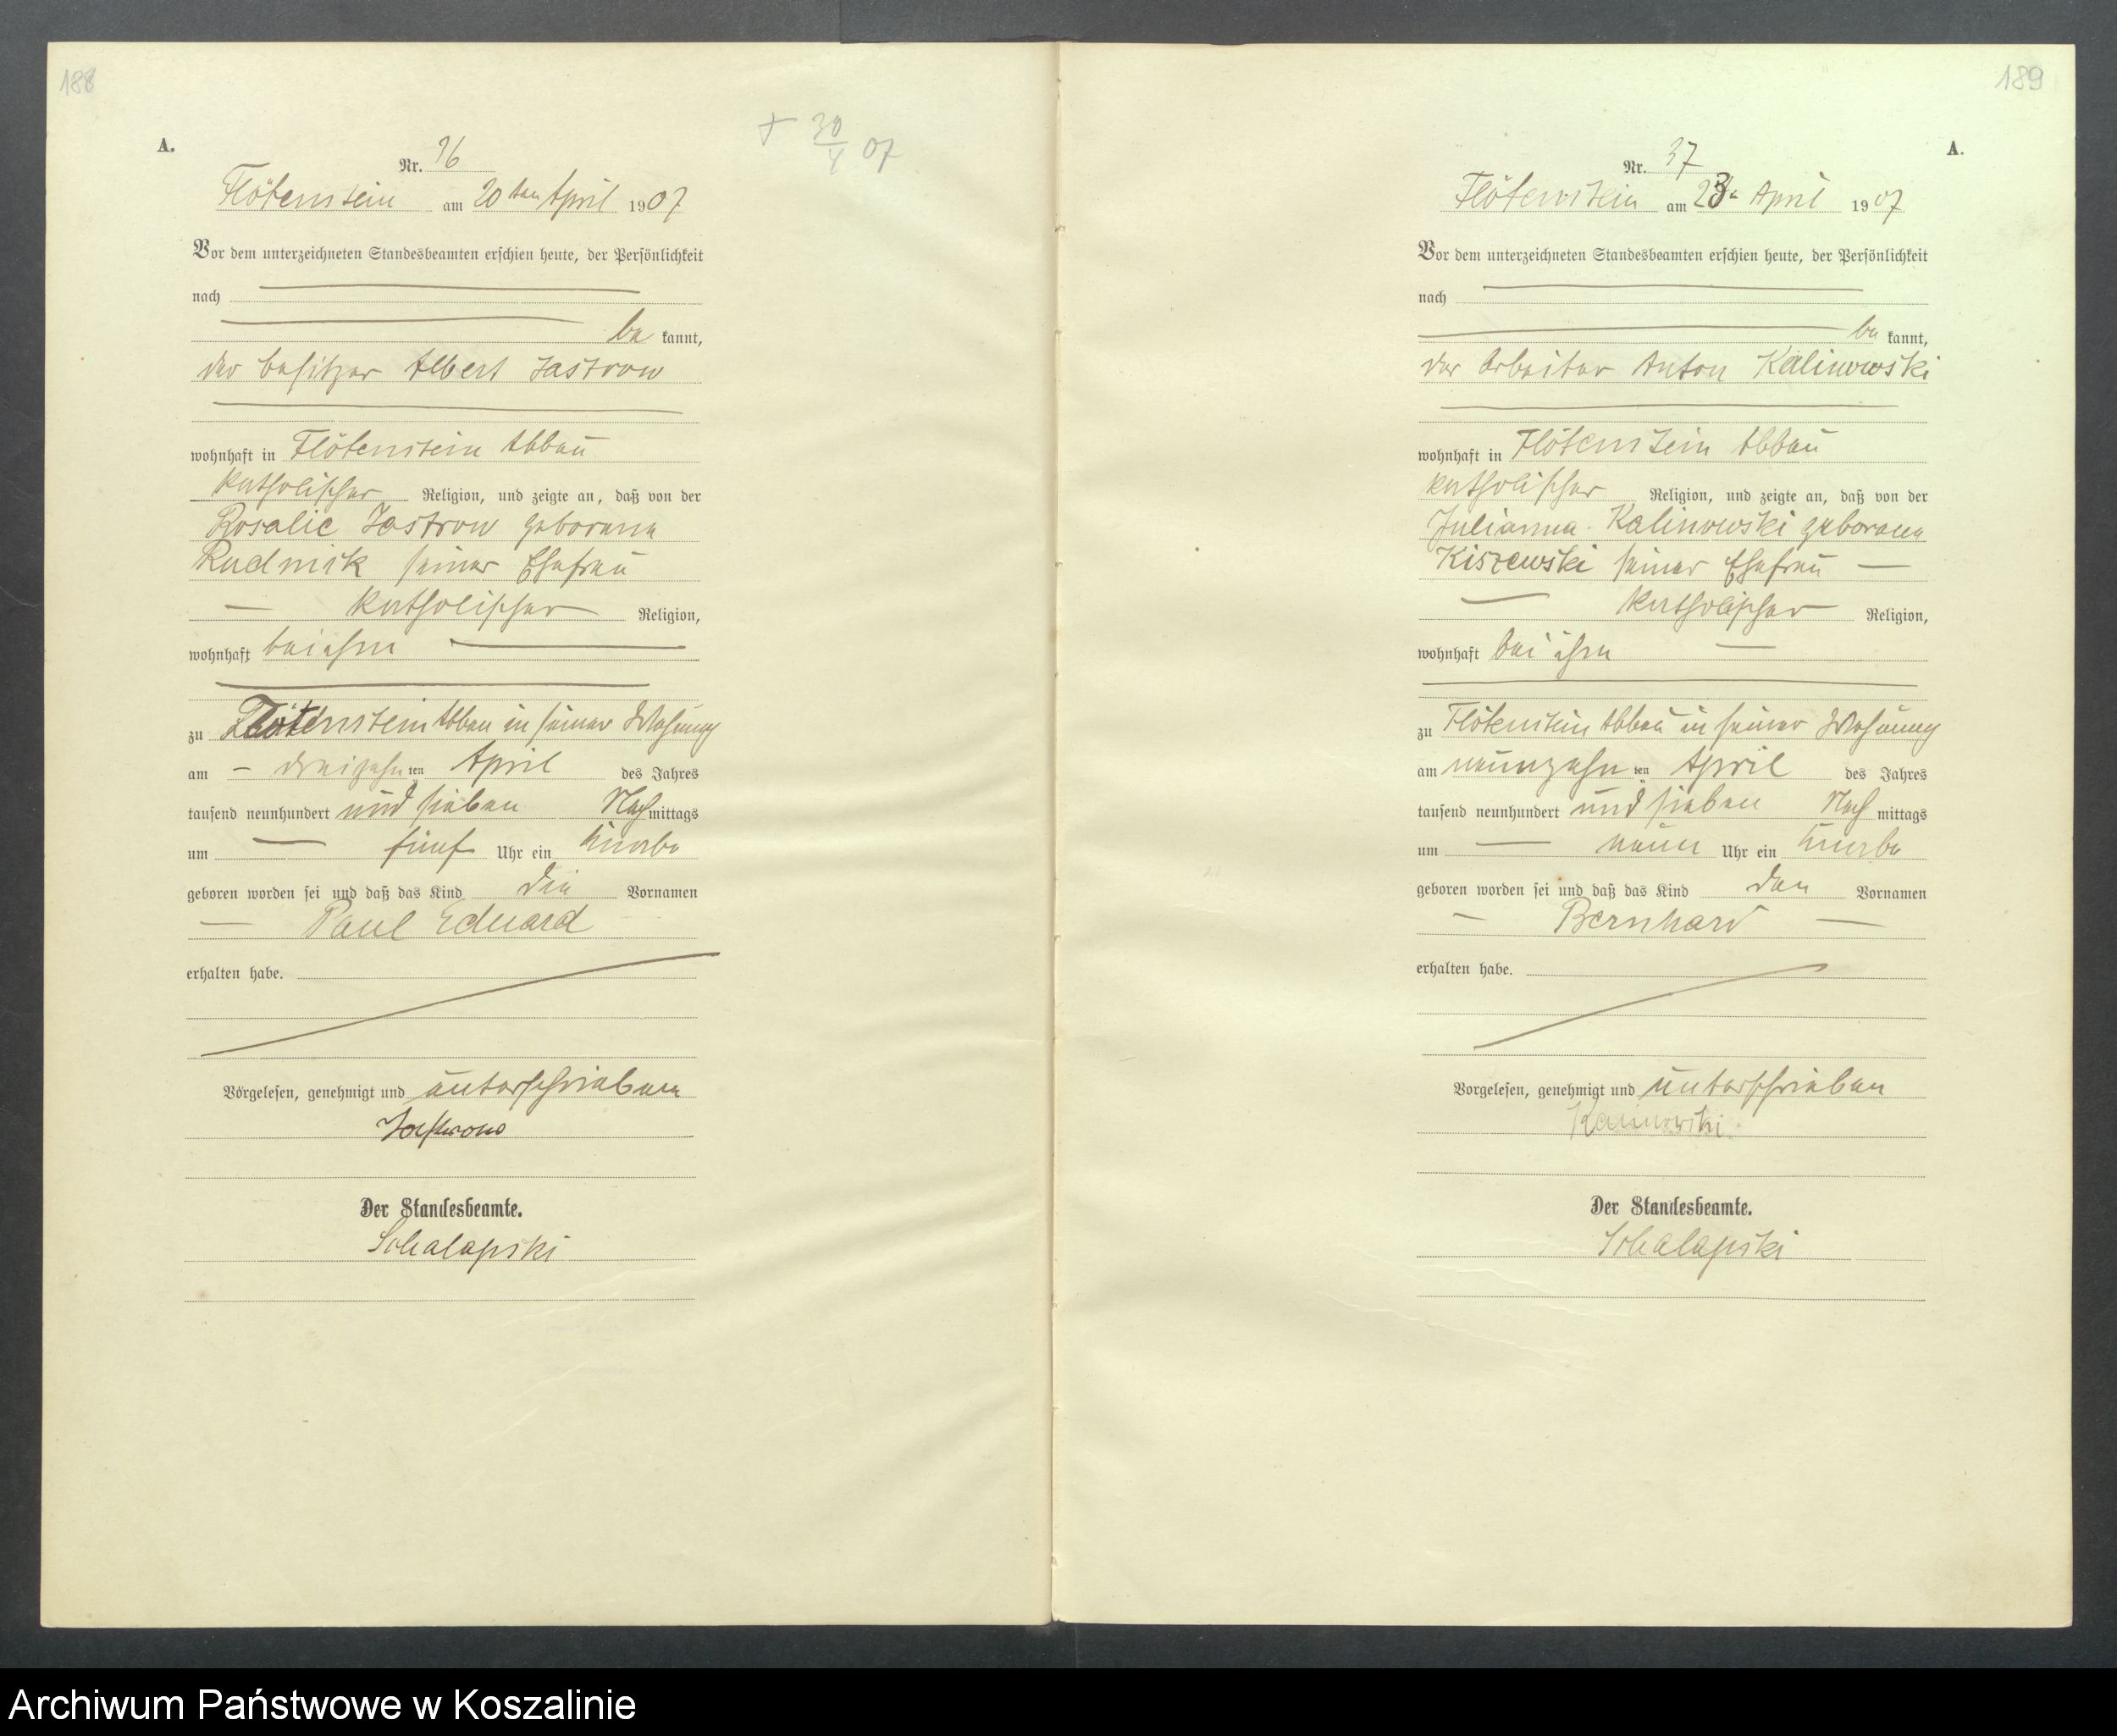 188
A.
† 30/4 07
Nr. 36
Flötenstein am 20ten April 1907
Vor dem unterzeichneten Standesbeamten erschien heute, der Persönlichkeit
nach
be kannt,
der Besitzer Albert Jastrow
wohnhaft in Flötenstein Abbau
katholischer Religion, und zeigte an, daß von der
Rosalie Jastrow geborene
Rudnick seiner Ehefrau
katholischer Religion,
wohnhaft bei ihm
zu Flötenstein Abbau in seiner Wohnung
am dreizehn ten April des Jahres
tausend neunhundert und sieben Nach mittags
um fünf Uhr ein Knabe
geboren worden sei und daß das Kind die Vornamen
Paul Eduard
erhalten habe.
Vorgelesen, genehmigt und unterschrieben
Jastrow
Der Standesbeamte.
189
A.
Nr. 37
Flötenstein am 23ten April 1907
Vor dem unterzeichneten Standesbeamten erschien heute, der Persönlichkeit
nach
be kannt,
der Arbeiter Anton Kalinowski
wohnhaft in Flötenstein Abbau
katholischer Religion, und zeigte an, daß von der
Julianna Kalinowski geborene
Kiszewski seiner Ehefrau
katholischer Religion,
wohnhaft bei ihm
zu Flötenstein Abbau in seiner Wohnung
am neunzehn ten April des Jahres
tausend neunhundert und sieben Nach mittags
um neun Uhr ein Knabe
geboren worden sei und daß das Kind den Vornamen
Bernhard
erhalten habe.
Vorgelesen, genehmigt und unterschrieben
Kalinowski
Der Standesbeamte.
Archiwum Państwowe w Koszalinie